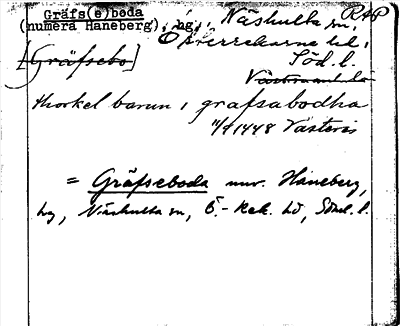 Gräfs(e)boda Näshulta sn, RAP
(numera Haneberg), hg, Österrekarne hd,
[Gräfsebo] Söd. l.
Västermanl. la
thorkel barun i grafsabodha
11/4 1448 Västerås
= Gräfseboda nuv. Haneberg,
hg, Näshulta sn, Ö.-Rek. hd, Söd. l.